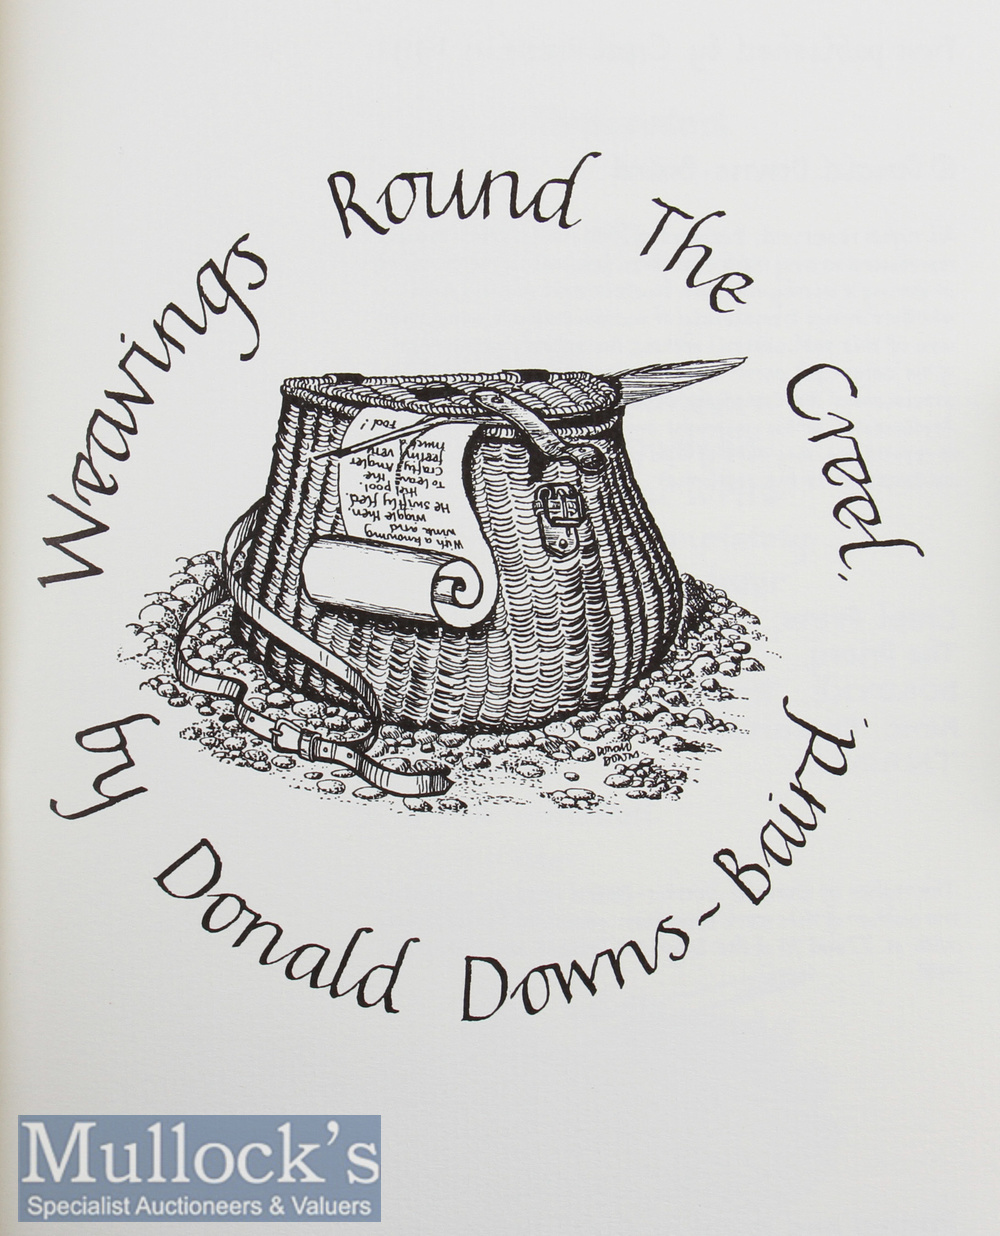 Weavings Round The Creel.
With a knowing
wink and
wiggle then
He swiftly fled.
the pool.
To leave the
crafty Angler
feeling very
much a
Fool!
DONALD
DOWNS
by Donald Downs~Baird.
Mullock's
Specialist Auctioneers & Valuers